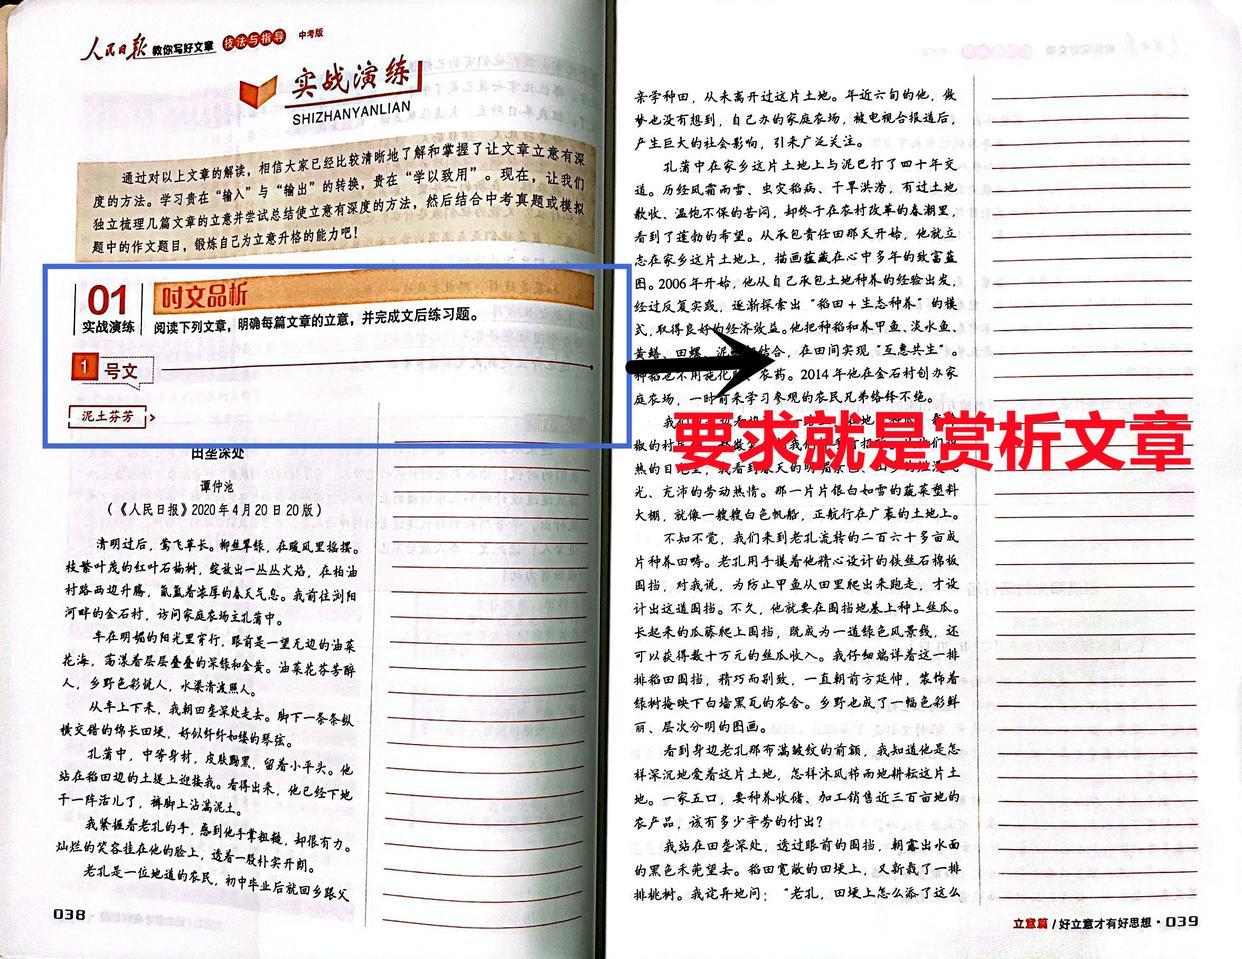 人民日报 教你写好文章 技法与指导 中考版
实战演练
SHIZHANYANLIAN
通过对以上文章的解读，相信大家已经比较清晰地了解和掌握了让文章立意有深
度的方法。学习贵在“输入”与“输出”的转换，贵在“学以致用”。现在，让我们
独立梳理几篇文章的立意并尝试总结使立意有深度的方法，然后结合中考真题或模拟
题中的作文题目，锻炼自己为立意升格的能力吧！
01
实战演练
时文品析
阅读下列文章，明确每篇文章的立意，并完成文后练习题。
1 号文
泥土芬芳
田垄深处
谭仲池
（《人民日报》2020年4月20日20版）
清明过后，莺飞草长。柳丝翠绿，在暖风里摇摆。
枝繁叶茂的红叶石楠树，绽放出一丛丛火焰，在柏油
村路两边升腾，氤氲着浓厚的春天气息。我前往浏阳
河畔的金石村，访问家庭农场主孔蒲中。
车在明媚的阳光里穿行，眼前是一望无边的油菜
花海，荡漾着层层叠叠的深绿和金黄。油菜花芬芳醉
人，乡野色彩悦人，水渠清波照人。
从车上下来，我朝田垄深处走去。脚下一条条纵
横交错的绵长田埂，好似纤纤如缕的琴弦。
孔蒲中，中等身材，皮肤黝黑，留着小平头。他
站在稻田边的土堤上迎接我。看得出来，他已经下地
干一阵活儿了，裤脚上沾满泥土。
我紧握着老孔的手，感到他手掌粗糙，却很有力。
灿烂的笑容挂在他的脸上，透着一股朴实开朗。
老孔是一位地道的农民，初中毕业后就回乡跟父
038
亲学种田，从未离开过这片土地。年近六旬的他，做
梦也没有想到，自己办的家庭农场，被电视台报道后，
产生巨大的社会影响，引来广泛关注。
孔蒲中在家乡这片土地上与泥巴打了四十年交
道。历经风霜雨雪、虫灾稻病、干旱洪涝，有过土地
歉收、温饱不保的苦闷，却终于在农村改革的春潮里，
看到了蓬勃的希望。从承包责任田那天开始，他就立
志在家乡这片土地上，描画蕴藏在心中多年的致富蓝
图。2006年开始，他从自己承包土地种养的经验出发，
经过反复实践，逐渐探索出“稻田+生态种养”的模
式，取得良好的经济效益。他把种稻和养甲鱼、淡水鱼、
黄鳝、田螺、泥 结合，在田间实现“互惠共生”。
种稻也不用施化 农药。2014年他在金石村创办家
庭农场，一时前来学习参观的农民兄弟络绎不绝。
要求就是赏析文章
光、充沛的劳动热情。那一片片银白如雪的蔬菜塑料
大棚，就像一艘艘白色帆船，正航行在广袤的土地上。
不知不觉，我们来到老孔流转的二百六十多亩成
片种养田畴。老孔用手摸着他精心设计的铁丝石棉板
围挡，对我说，为防止甲鱼从田里爬出来跑走，才设
计出这道围挡。不久，他就要在围挡地基上种上丝瓜。
长起来的瓜藤爬上围挡，既成为一道绿色风景线，还
可以获得数十万元的丝瓜收入。我仔细端详着这一排
排稻田围挡，精巧而别致，一直朝前方延伸，装饰着
绿树掩映下白墙黑瓦的农舍。乡野也成了一幅色彩鲜
丽、层次分明的图画。
看到身边老孔那布满皱纹的前额，我知道他是怎
样深沉地爱着这片土地，怎样沐风栉雨地耕耘这片土
地。一家五口，要种养收储、加工销售近三百亩地的
农产品，该有多少辛劳的付出？
我站在田垄深处，透过眼前的围挡，朝露出水面
的黑色禾蔸望去。稻田宽敞的田埂上，又新栽了一排
排桃树。我诧异地问：“老孔，田埂上怎么添了这么
立意篇 / 好立意才有好思想·039